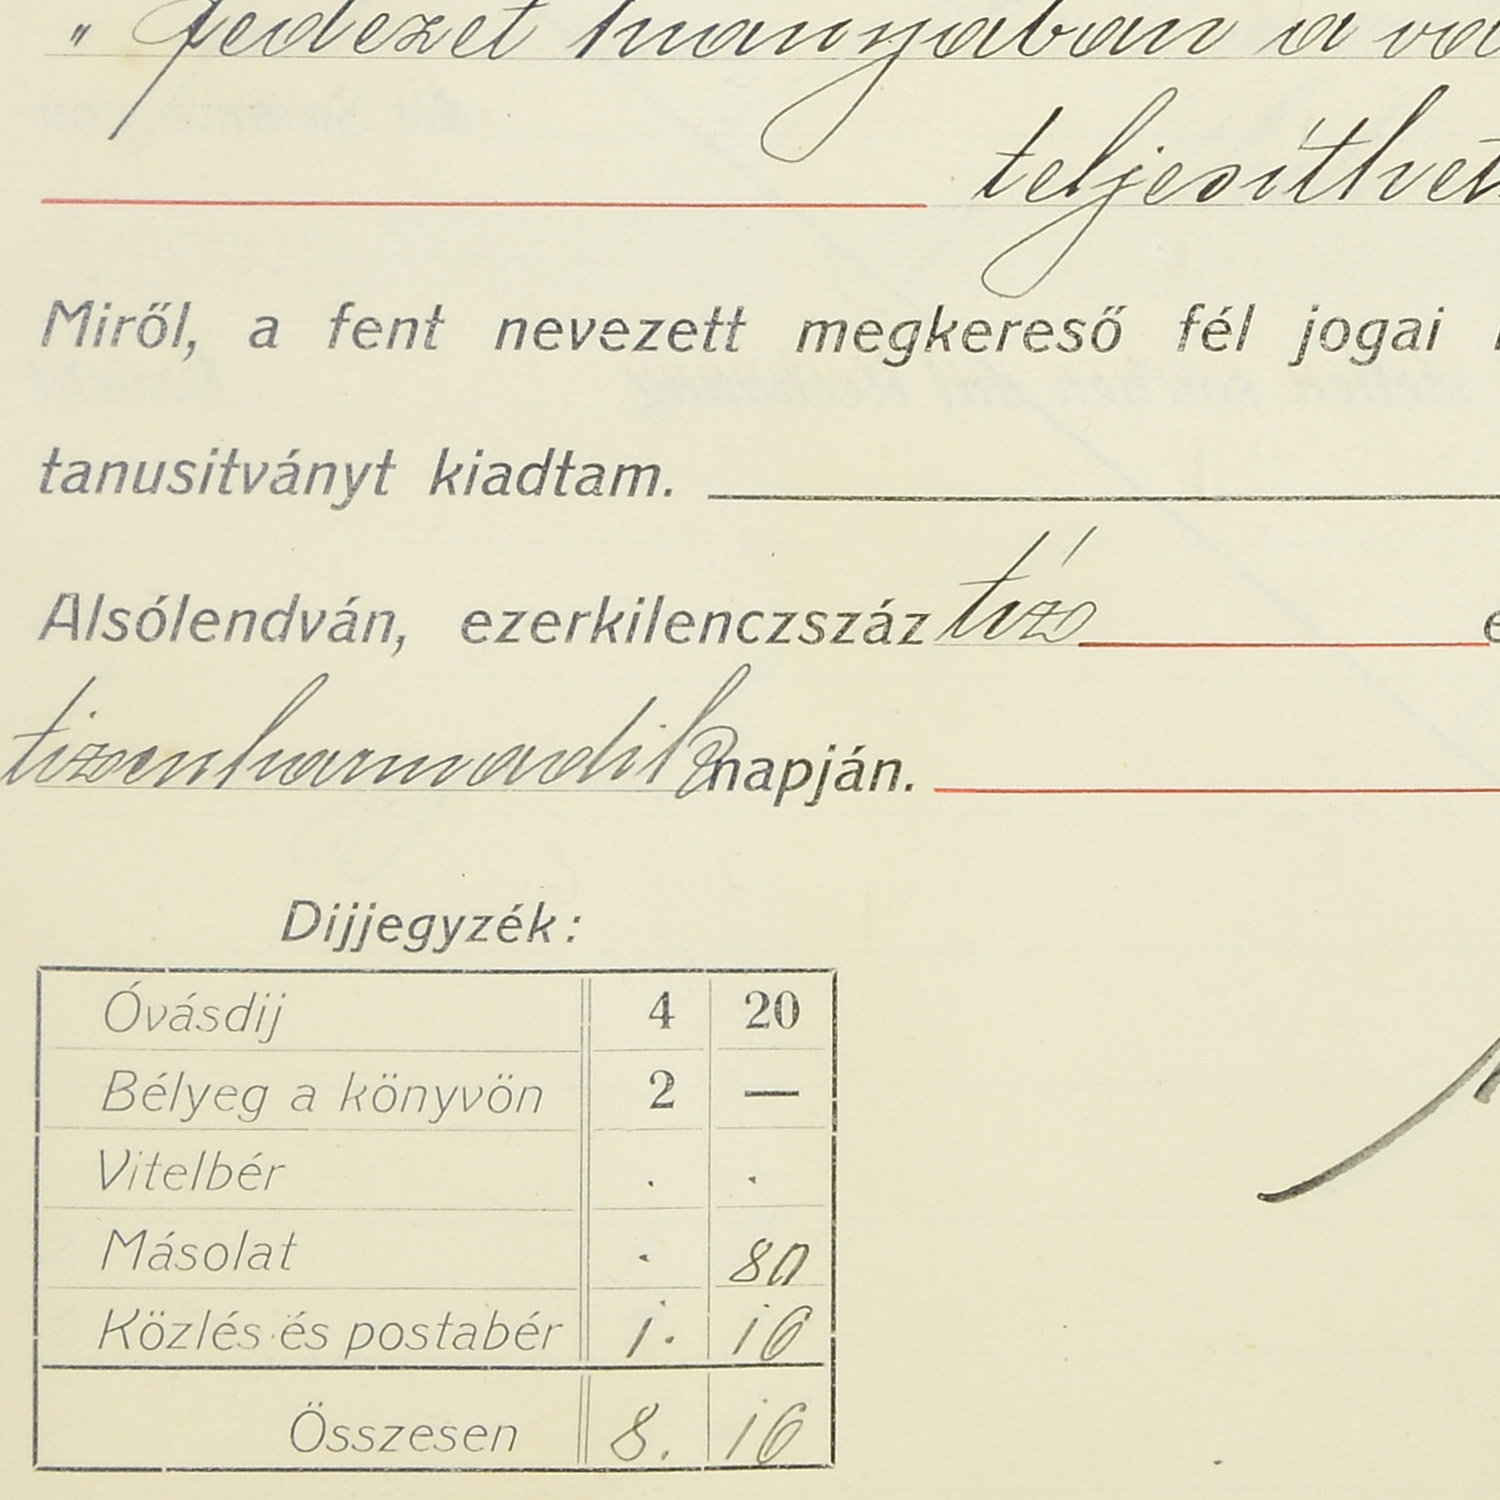 " fedezet hiányában a
teljesíthet
Miről, a fent nevezett megkereső fél jogai
tanusitványt kiadtam.
Alsólendván, ezerkilenczszáz tíz
tizenharmadik napján.
Dijjegyzék:
Óvásdij 4 20
Bélyeg a könyvön 2 —
Vitelbér . .
Másolat . 80
Közlés és postabér 1. 16
Összesen 8. 16